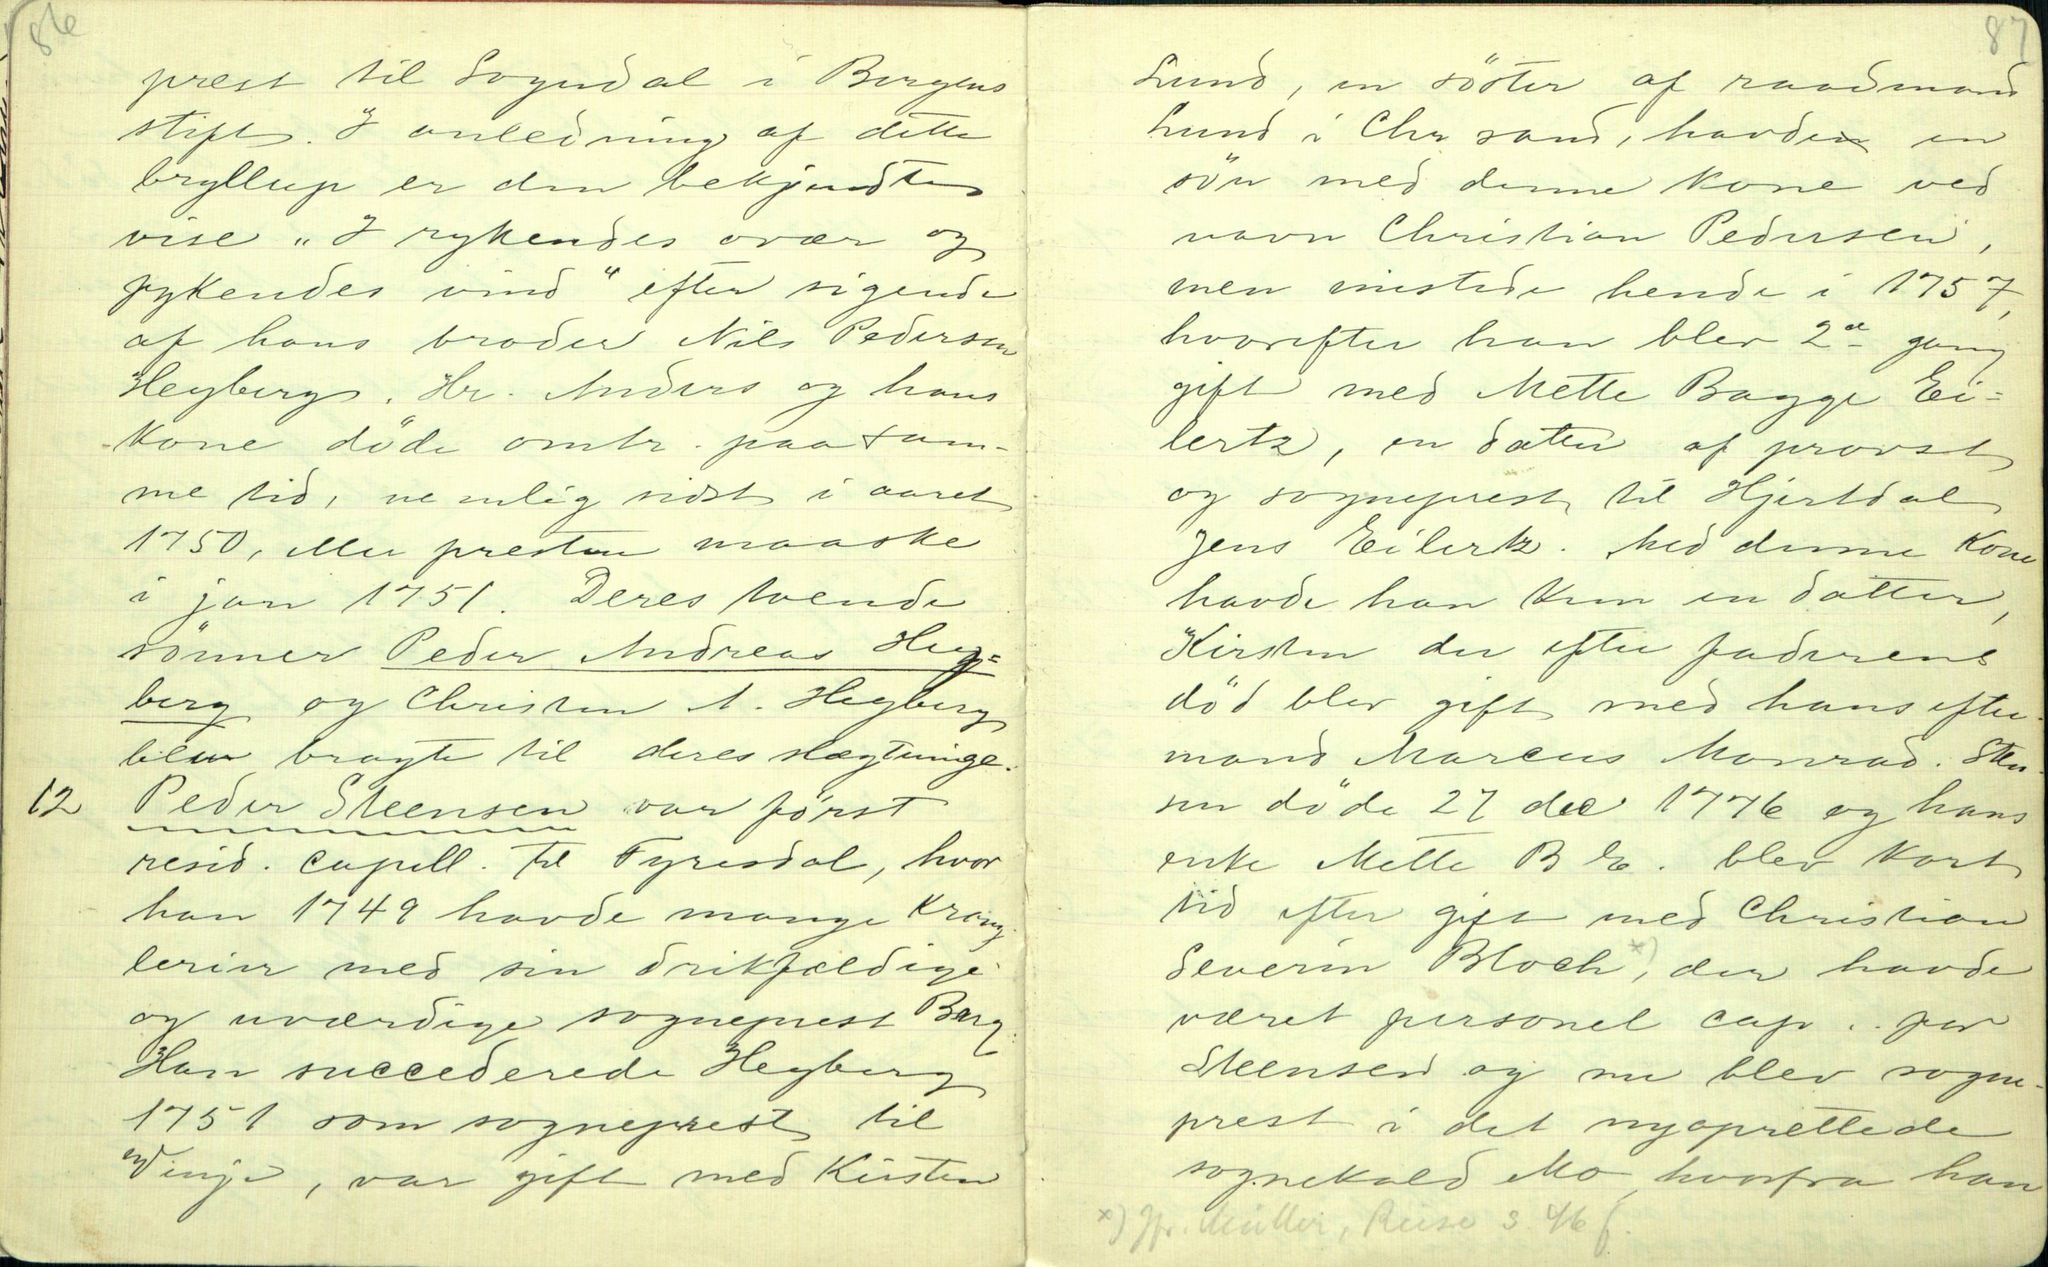 86
prest til Sogndal i Bergens
stift. I anledning af dette
bryllup er den bekjendte
vise „I rykendes ovær og
fykendes vind" efter sigende
af hans broder Nils Pedersen
Heyberg. Hr. Anders og hans
kone döde omtr. paa sam-
me tid, nemlig sidst i aaret
1750, eller presten maaske
i jan 1751. Deres tvende
sönner Peder Andreas Hey=
berg og Christen A. Heyberg
blev bragte til deres slægtninge.
12 Peder Steensen var först
resid. capell. til Fyresdal, hvor
han 1749 havde mange krang
lerier med sin drikfældige
og uværdige sogneprest Barg.
Han succederede Heyberg
1751 som sogneprest til
Vinje, var gift med Kirsten
87
Lund, en söster af raadmand
Lund i Chr sand, havde en
sön med denne kone ved
navn Christian Pedersen,
men mistede hende i 1757,
hvorefter han blev 2d gang
gift med Mette Bagge Ei=
lertz, en datter af provst
og sogneprest til Hjertdal
Jens Eilertz. Med denne kone
havde han kun en datter,
Kirsten der efter faderens
död blev gift med hans efter-
mand Marcus Monrad. Steen-
sen döde 27 dec 1776 og hans
enke Mette B E. blev kort
tid efter gift med Christian
Severin Bloch*), der havde
været personel cap. for
Steensen og nu blev sogne-
prest i det nyoprettede
sognekald Mo hvorfra han
*) Jfr. Müller, Reise s. 46 f.